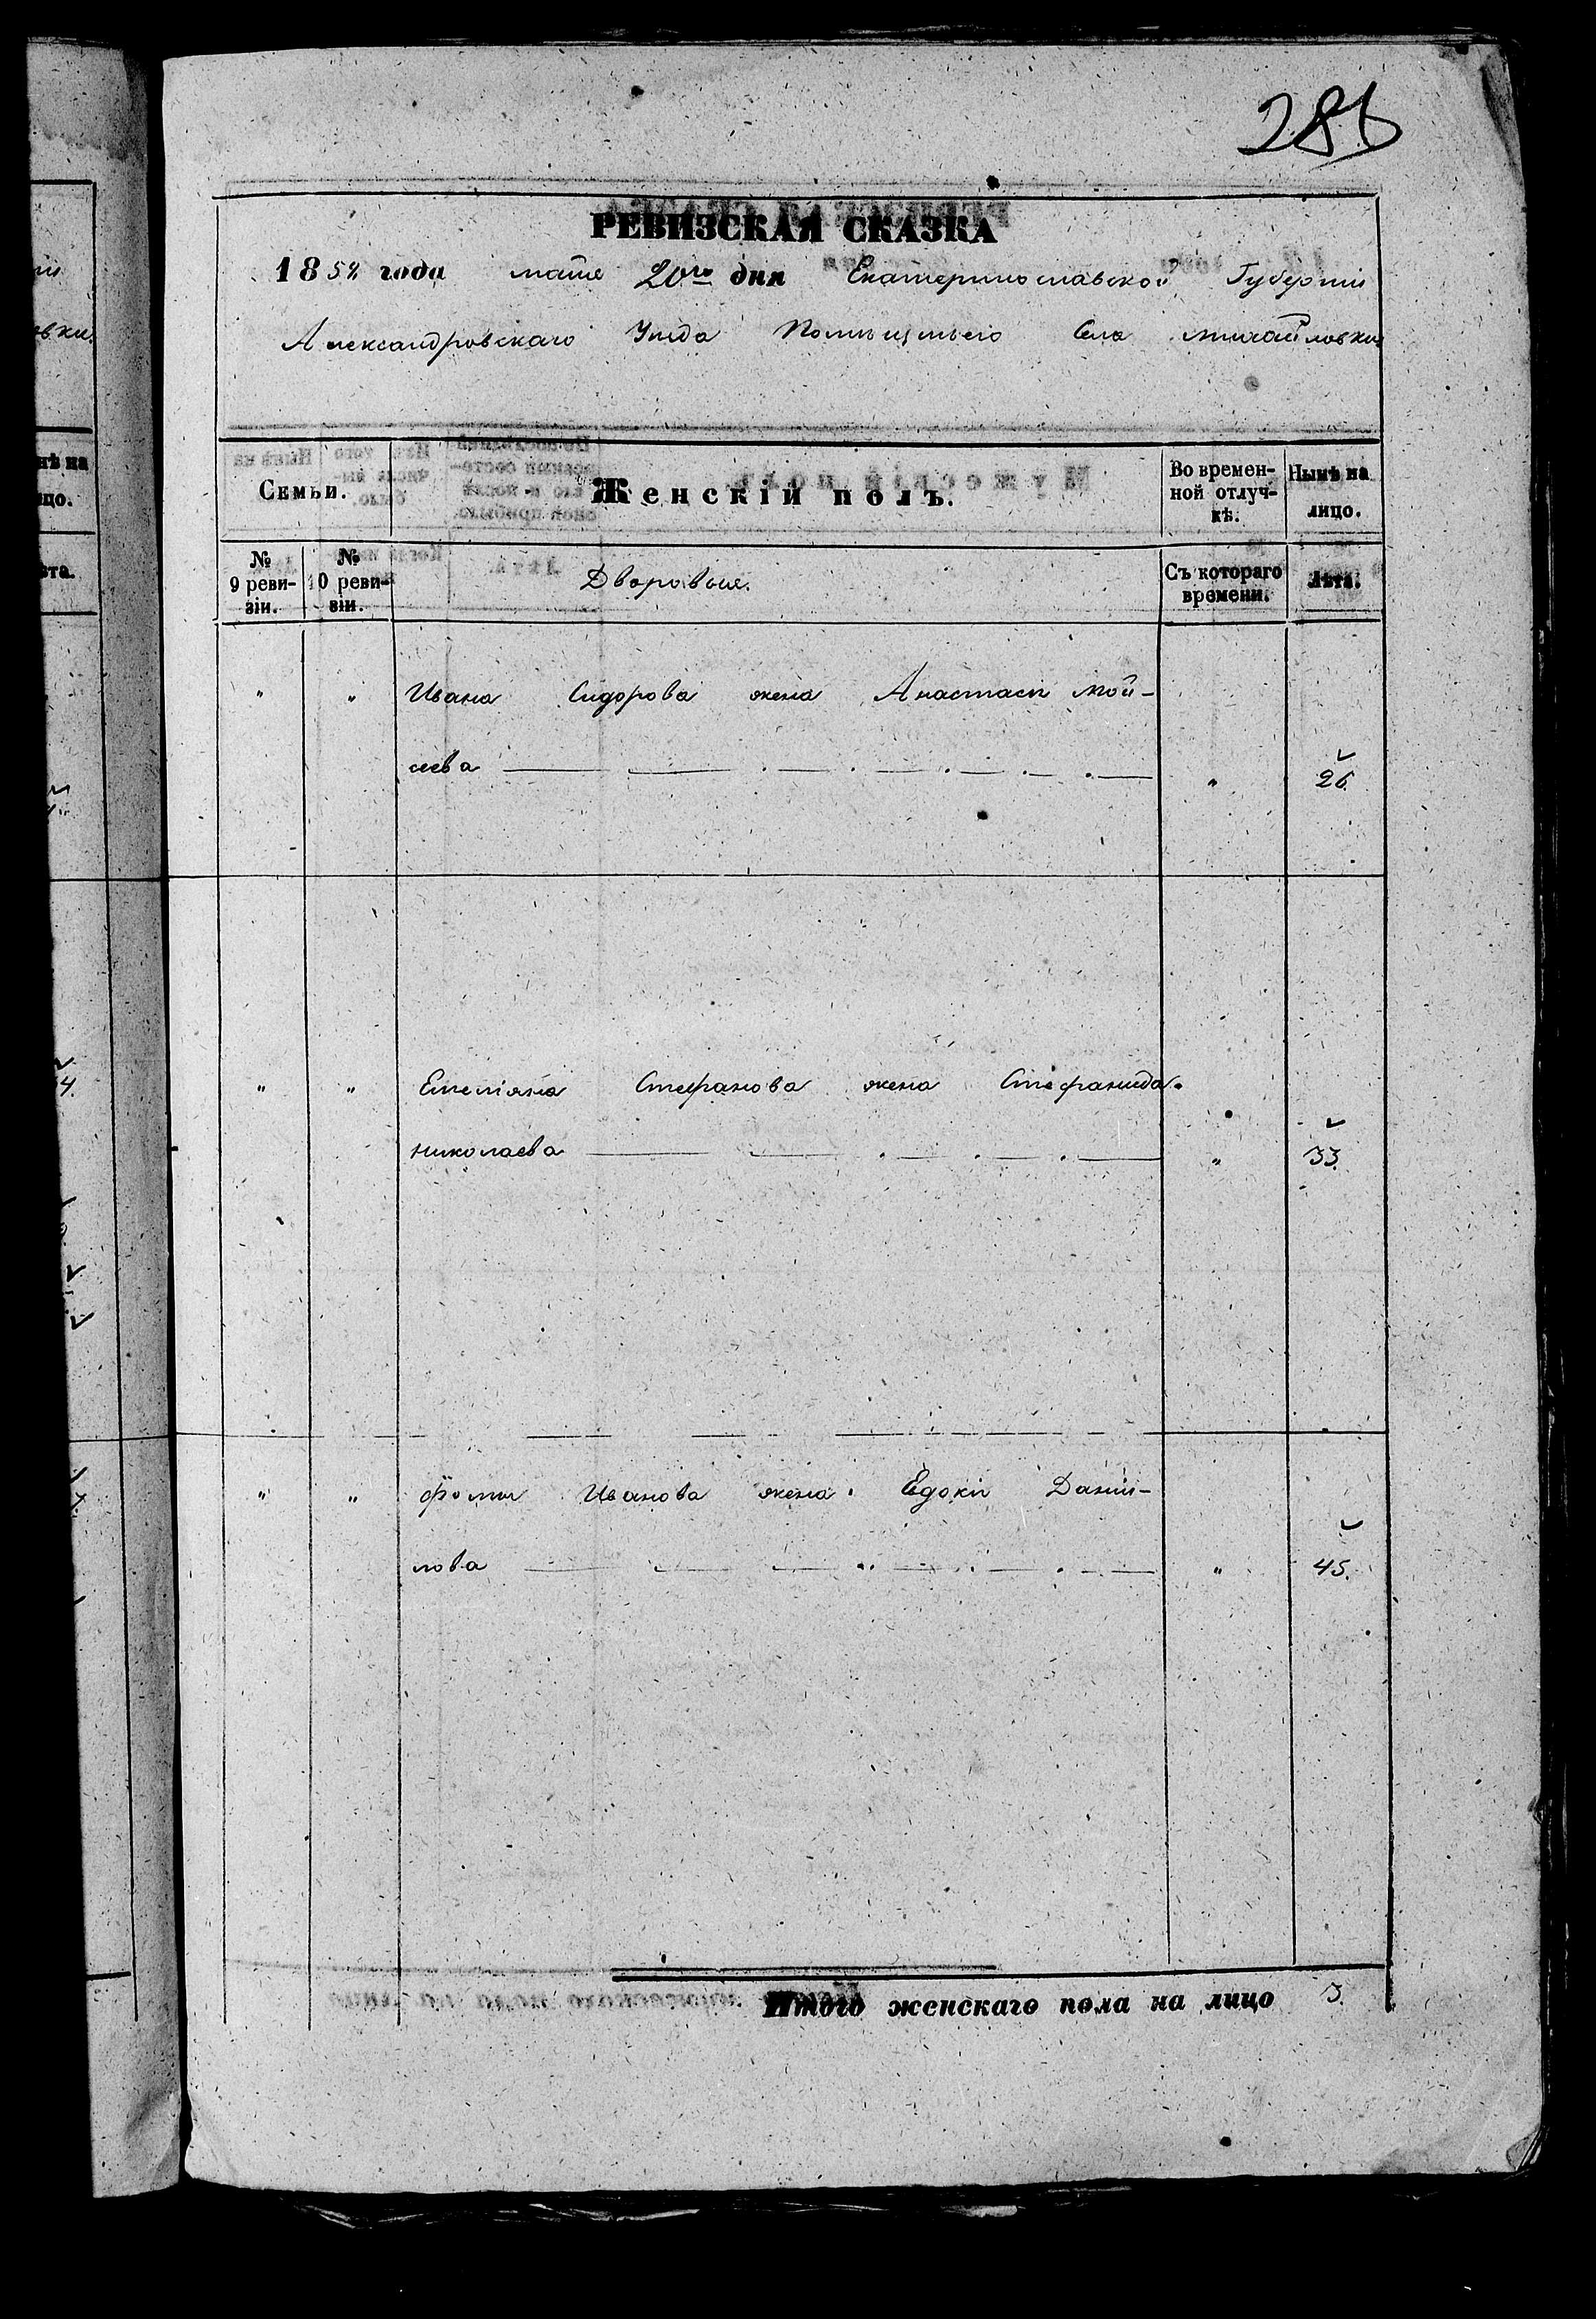 285
РЕВИЗСКАЯ СКАЗКА
1858 года маія 20го дня Екатеринославской Губерніи
Александровскаго Уезда Помещичьего Села Михайловки
Семьи. Женскій полъ. Во времен-ной отлуч-кѣ. Нынѣ на лицо.
№ 9 реви-зіи. № 10 реви-зіи. Дворовые. Съ котораго времени. Лѣта.
" " Ивана Сидорова жена Анастасія Мои-
сеева " 26.
" " Емельяна Стефанова жена Стефанида
Николаева " 33.
" " Фомы Иванова жена Евдокія Дании-
лова " 45.
Итого женскаго пола на лицо 3.